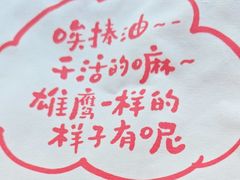 唉揍油~~
干活的嘛~
雄鹰一样的
样子有呢